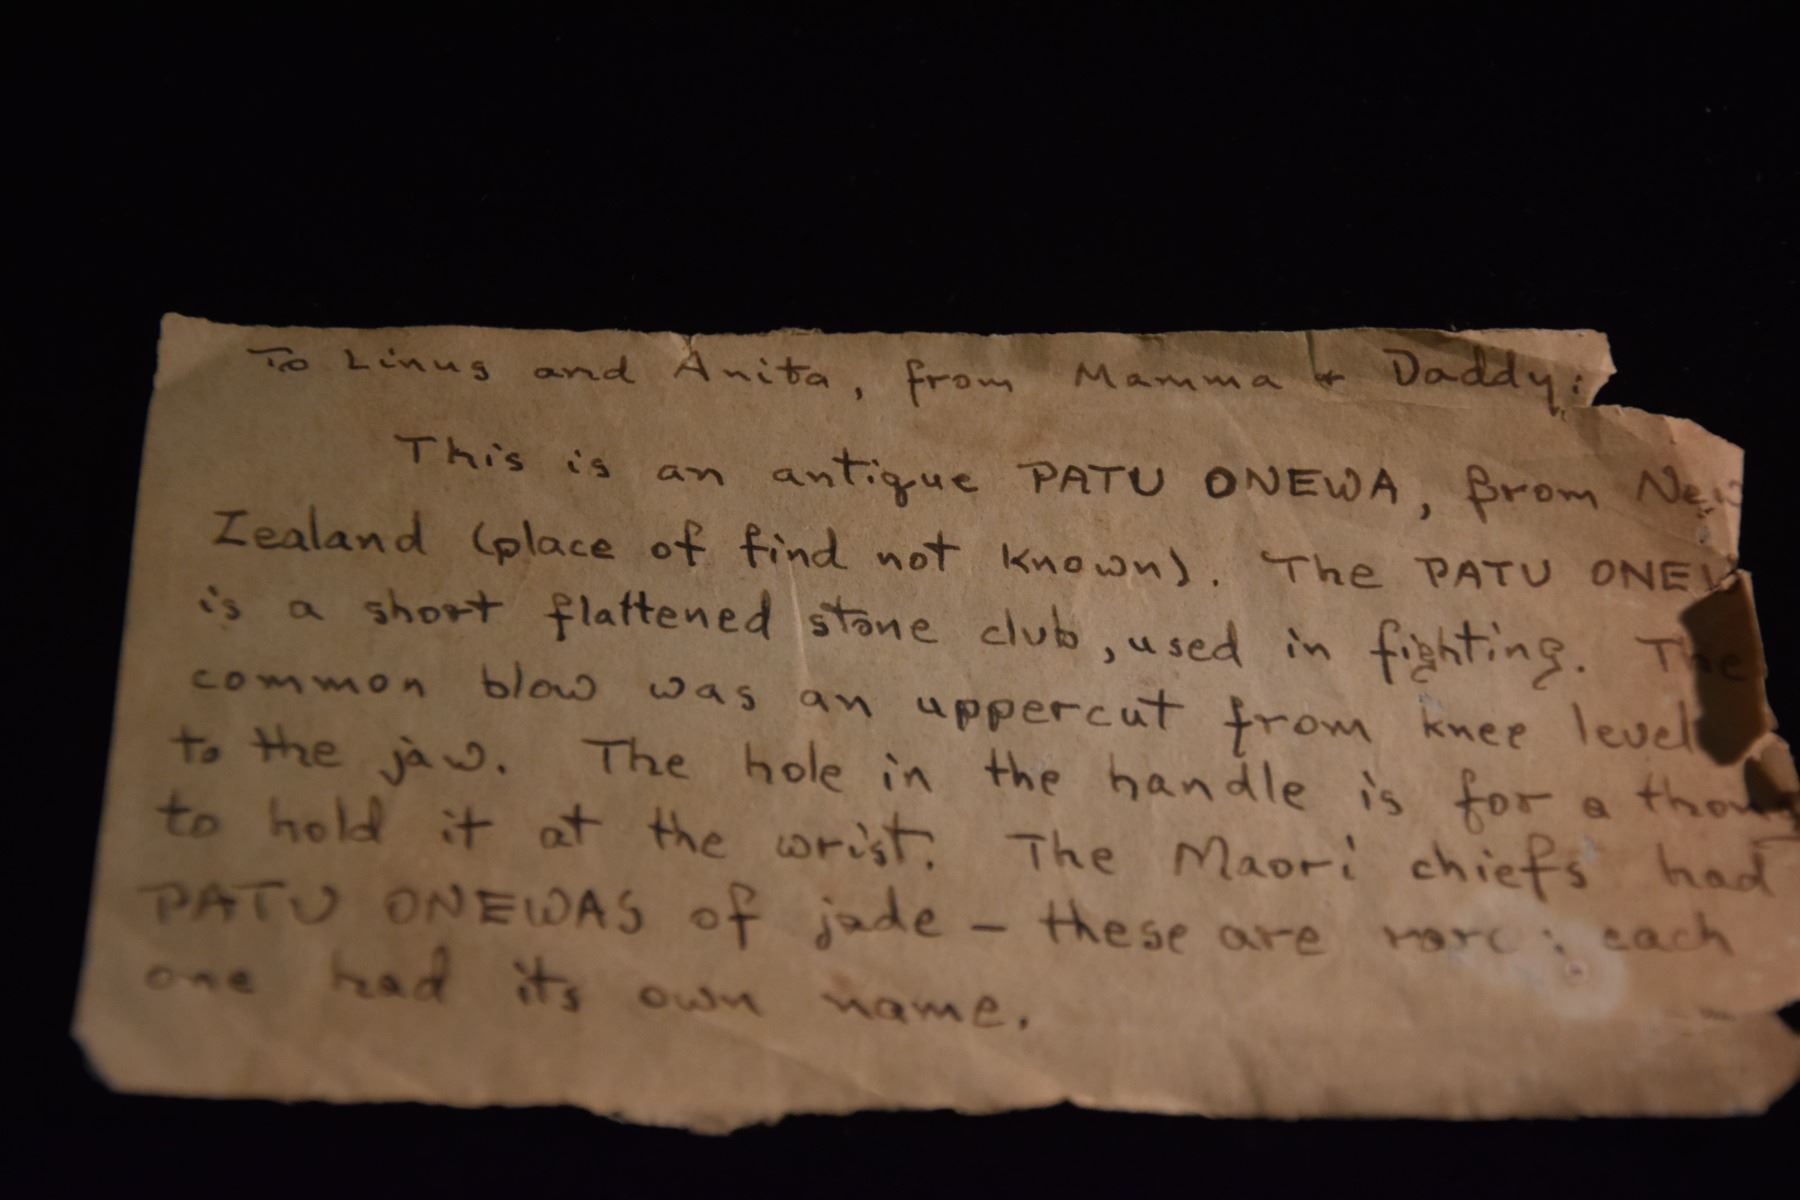 To Linus and Anita, from Mamma & Daddy:
This is an antique PATU ONEWA, from New
Zealand (place of find not known). The PATU ONEW
is a short flattened stone club, used in fighting. The
common blow was an uppercut from knee level
to the jaw. The hole in the handle is for a thong
to hold it at the wrist. The Maori chiefs had
PATU ONEWAS of jade – these are rare; each
one had its own name.